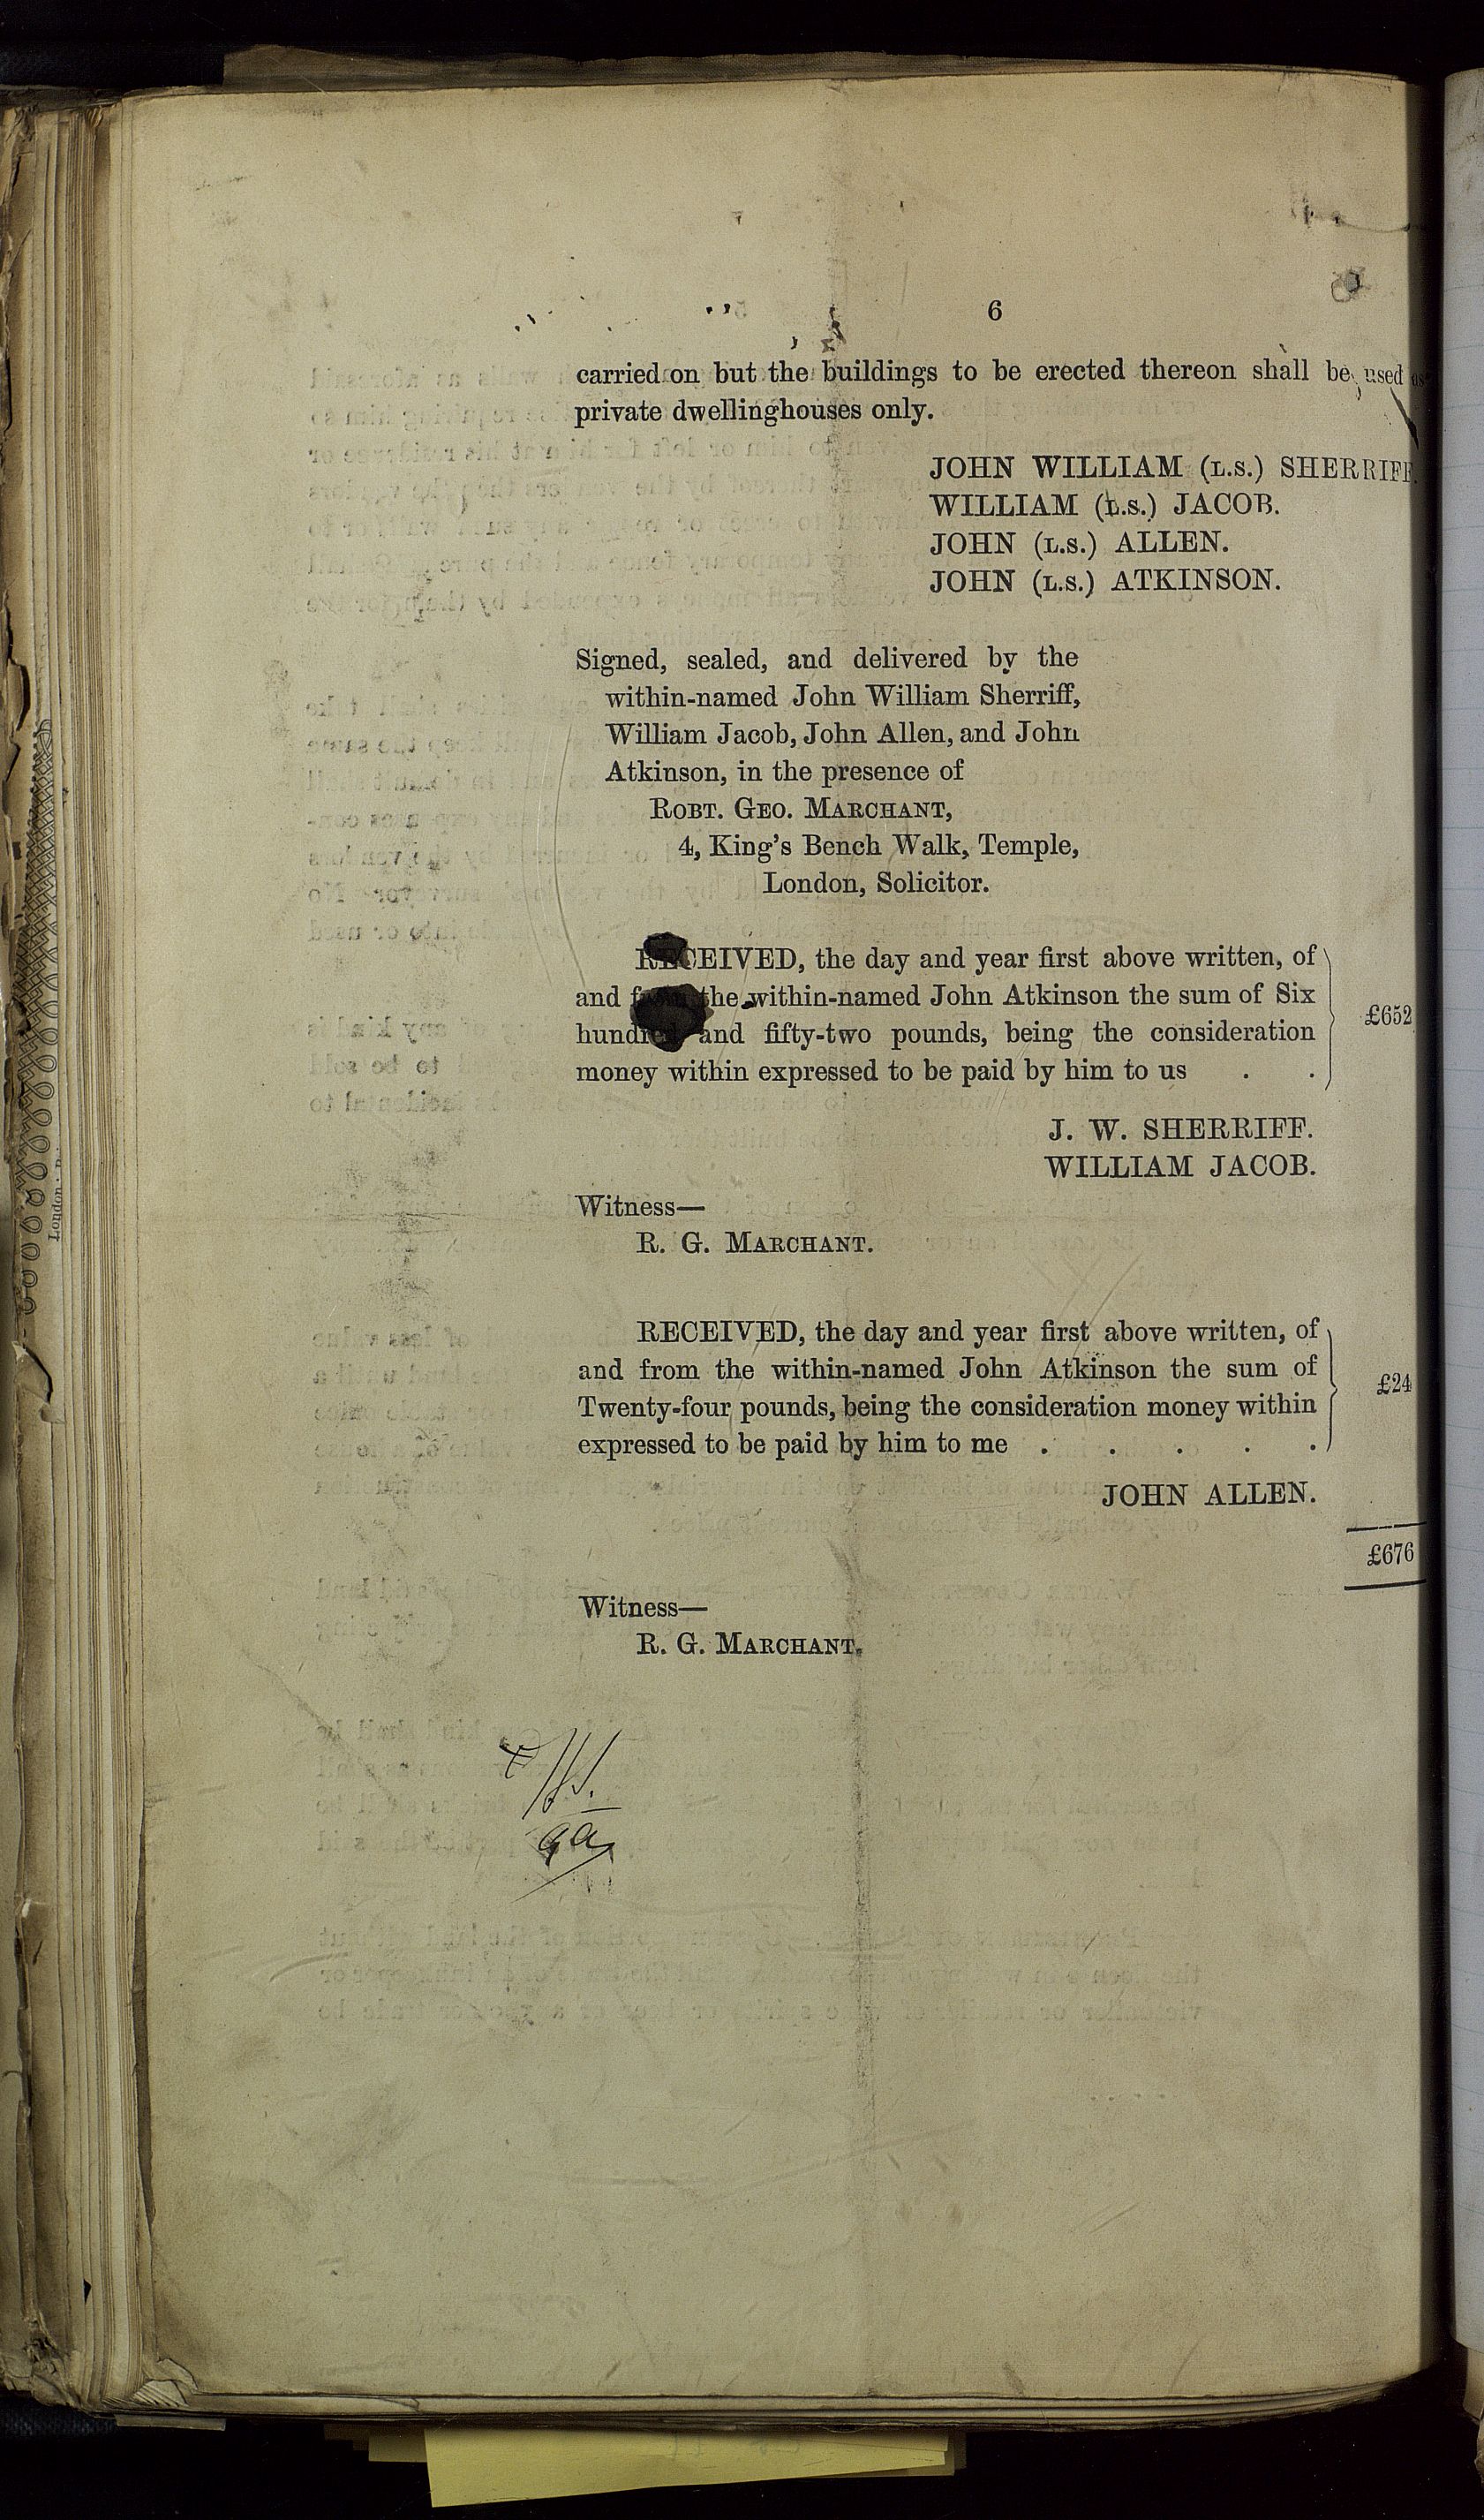 6
carried on but the buildings to be erected thereon shall be used as
private dwellinghouses only.
JOHN WILLIAM (L.S.) SHERRIFF.
WILLIAM (L.S.) JACOB.
JOHN (L.S.) ALLEN.
JOHN (L.S.) ATKINSON.
Signed, sealed, and delivered by the
within-named John William Sherriff,
William Jacob, John Allen, and John
Atkinson, in the presence of
ROBT. GEO. MARCHANT,
4, King's Bench Walk, Temple,
London, Solicitor.
RECEIVED, the day and year first above written, of
and from the within-named John Atkinson the sum of Six
hundred and fifty-two pounds, being the consideration
money within expressed to be paid by him to us . .
£652
J. W. SHERRIFF.
WILLIAM JACOB.
Witness—
R. G. MARCHANT.
RECEIVED, the day and year first above written, of
and from the within-named John Atkinson the sum of
Twenty-four pounds, being the consideration money within
expressed to be paid by him to me . . . . .
£24
JOHN ALLEN.
£676
Witness—
R. G. MARCHANT.